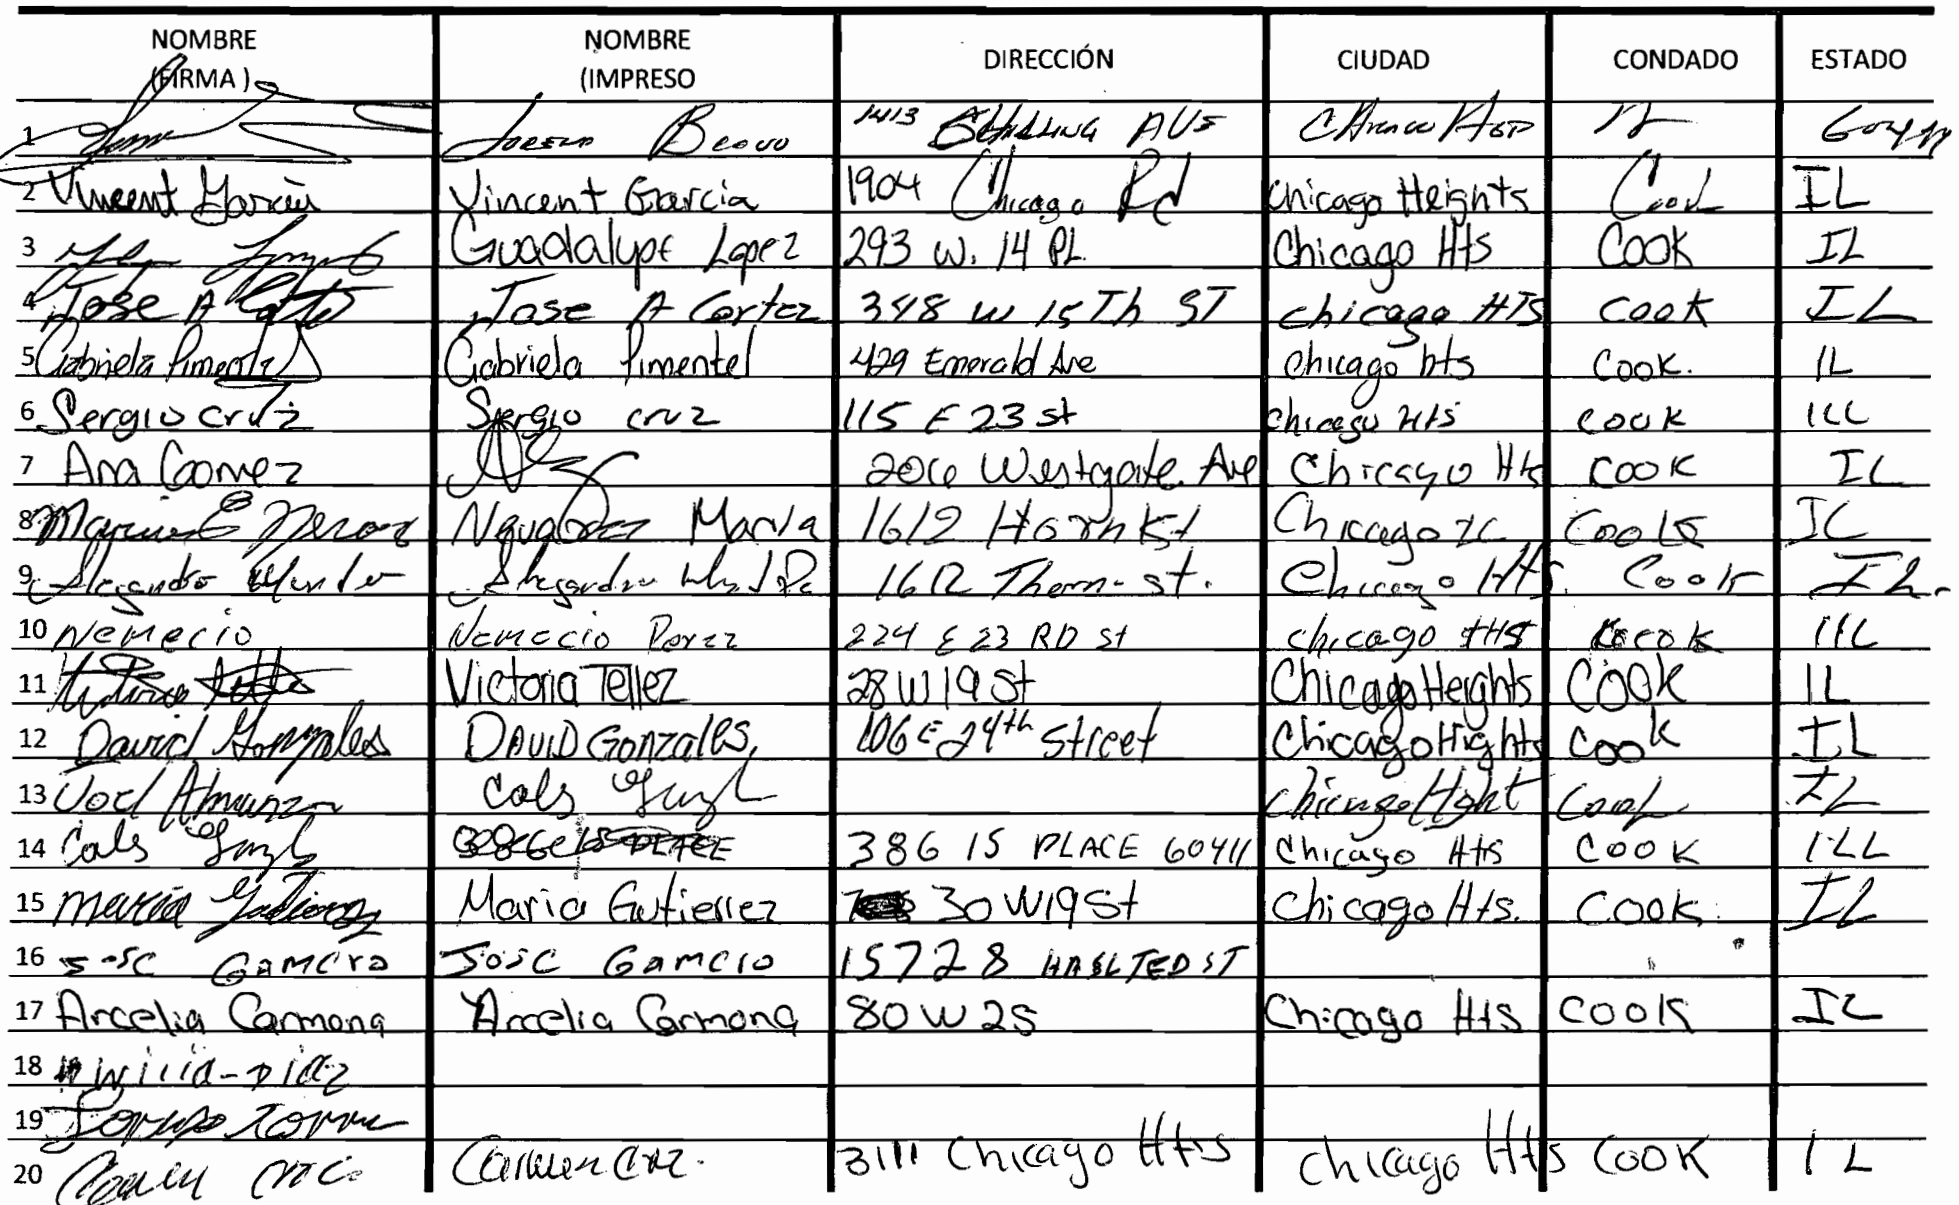 NOMBRE (FIRMA) NOMBRE (IMPRESO DIRECCIÓN CIUDAD CONDADO ESTADO
1 1413 AVE
2 Vincent Garcia Vincent Garcia 1904 Chicago Rd Chicago Heights Cook IL
3 Guadalupe Lopez 293 W. 14 PL. Chicago Hts COOK IL
4 Jose A Jose A Cortez 348 W 15Th ST chicago HTS COOK IL
5 Gabriela Pimentel Gabriela Pimentel 429 Emerald Ave Chicago hts COOK. IL
6 Sergio cruz Sergio cruz 115 E 23 st chicago Hts COOK ILL
7 Ana Gomez Westgate Ave Chicago Hts COOK IL
8 Maria 1612 Chicago IL IL
9 Alejandro 1612 Thorn st. Chicago Hts. Cook IL.
10 Nemecio Nemecio Perez 224 E 23 RD St chicago HTS
11 Victoria Tellez 28 W 19 St Chicago Heights COOK IL
12 David Gonzales DAVID GONZALES, 106 E 24th Street Chicago Hights Cook IL
13 Joel Chicago Hght Cook IL
14 386 15 PLACE 60411 Chicago Hts COOK ILL
15 Maria Gutierrez Maria Gutierrez 30 W 19 St Chicago Hts. COOK. IL
16 GAMERO JOSE 15728 HASLTED ST
17 Arcelia Carmona Arcelia Carmona 80 W 25 Chicago Hts COOK IL
18 -Diaz
19
20 Carmen Cruz. 3111 Chicago Hts Chicago Hts COOK IL